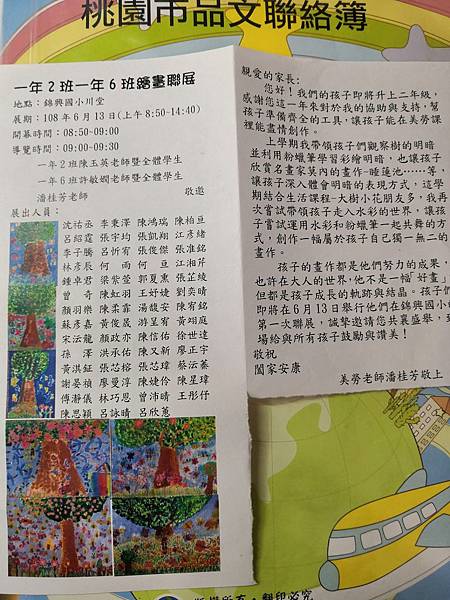 桃園市品文聯絡簿
一年2班一年6班繪畫聯展
地點：錦興國小川堂
展期：108年6月13日(上午8:50~14:40)
開幕時間：08:50~09:00
導覽時間：09:00~09:30
一年2班陳玉英老師暨全體學生
一年6班許敏嫻老師暨全體學生
潘桂芳老師 敬邀
展出人員：
沈祐丞 李秉澤 陳鴻瑞 陳柏亘
呂紹霆 張宇均 張凱翔 江彥緒
李子騰 呂忻宥 張俊傑 張准銘
林彥辰 何雨 何亘 江湘芹
鍾卓君 梁紫萱 郭夏熏 張芷綾
曾奇 陳虹羽 王妤婕 劉奕晴
顏羽樂 陳柔霏 湯馥安 陳宥銘
蘇彥嘉 黃俊晟 游呈宥 黃翊庭
宋沄龍 顏政亦 陳信佑 徐世達
孫澤 洪承佑 陳又新 廖正宇
黃淇鉦 張芯榕 張芯瑋 蔡沄蓁
謝晏禎 廖曼淳 陳婕伶 陳星瑋
傅瀞儀 林巧恩 曾沛晴 王彤伃
陳思穎 呂詠晴 呂欣蕙
親愛的家長:
您好！我們的孩子即將升上二年級，
感謝您這一年來對於我的協助與支持，幫
孩子準備齊全的工具，讓孩子能在美勞課
裡能盡情創作。
上學期我帶領孩子們觀察樹的明暗
並利用粉蠟筆學習彩繪明暗，也讓孩子
欣賞名畫家莫內的畫作-睡蓮池……等，
讓孩子深入體會明暗的表現方式，這學
期結合生活課程-大樹小花朋友多，我再
次嘗試帶領孩子走入水彩的世界，讓孩
子嘗試運用水彩和粉蠟筆一起共舞的方
式，創作一幅屬於孩子自己獨一無二的
畫作。
孩子的畫作都是他們努力的成果，
也許在大人的世界，他不是一幅「好畫」
但都是孩子成長的軌跡與結晶。孩子們
即將在6月13日舉行他們在錦興國小
第一次聯展，誠摯邀請您共襄盛舉，到
場給與所有孩子鼓勵與讚美！
敬祝
闔家安康
美勞老師潘桂芳敬上
版權所有，翻印必究